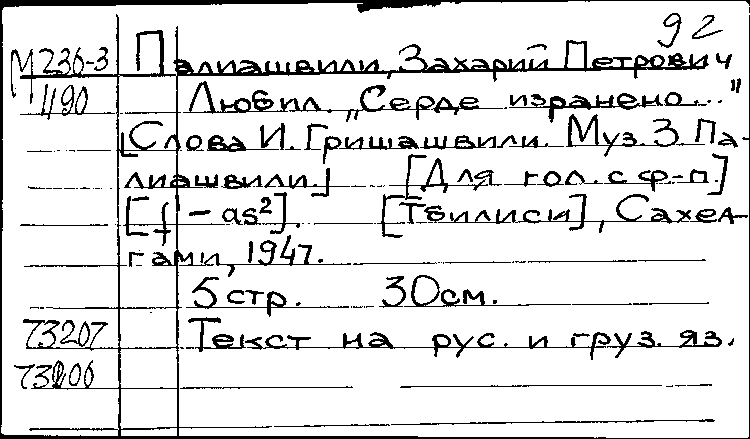 92
М 236-3 Палиашвили, Захарий Петрович
1190 Любил. „Серде изранено..."
[Слова И. Гришашвили. Муз. З. Па-
лиашвили.] [Для гол. с ф-п.]
[f' - as²]. [Тбилиси], Сахел-
гами, 1947.
5 стр. 30 см.
73207 Текст на рус. и груз. яз.